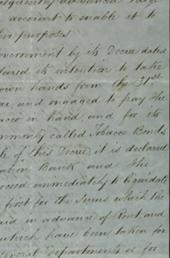 account to enable it to
purposes.
overnment by its Decree dated
lared its intention to take
own hands from the 31st
and engaged to pay the
bacco in hand and for its
ormerly called Tobacco Bonds
of this Decree it is declared
Bank and the
ceed immediately to liquidate
first for the Sums which the
aid in advance of Rent and
which have been taken for
eneral Departments or for